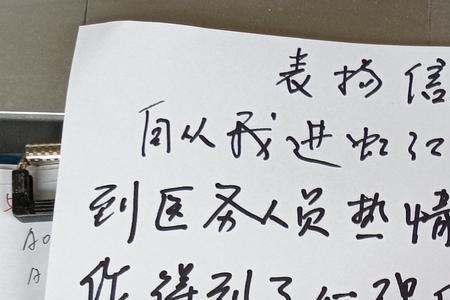 表扬信
自从我进虹口
到医务人员热情
作得到了
A0
A